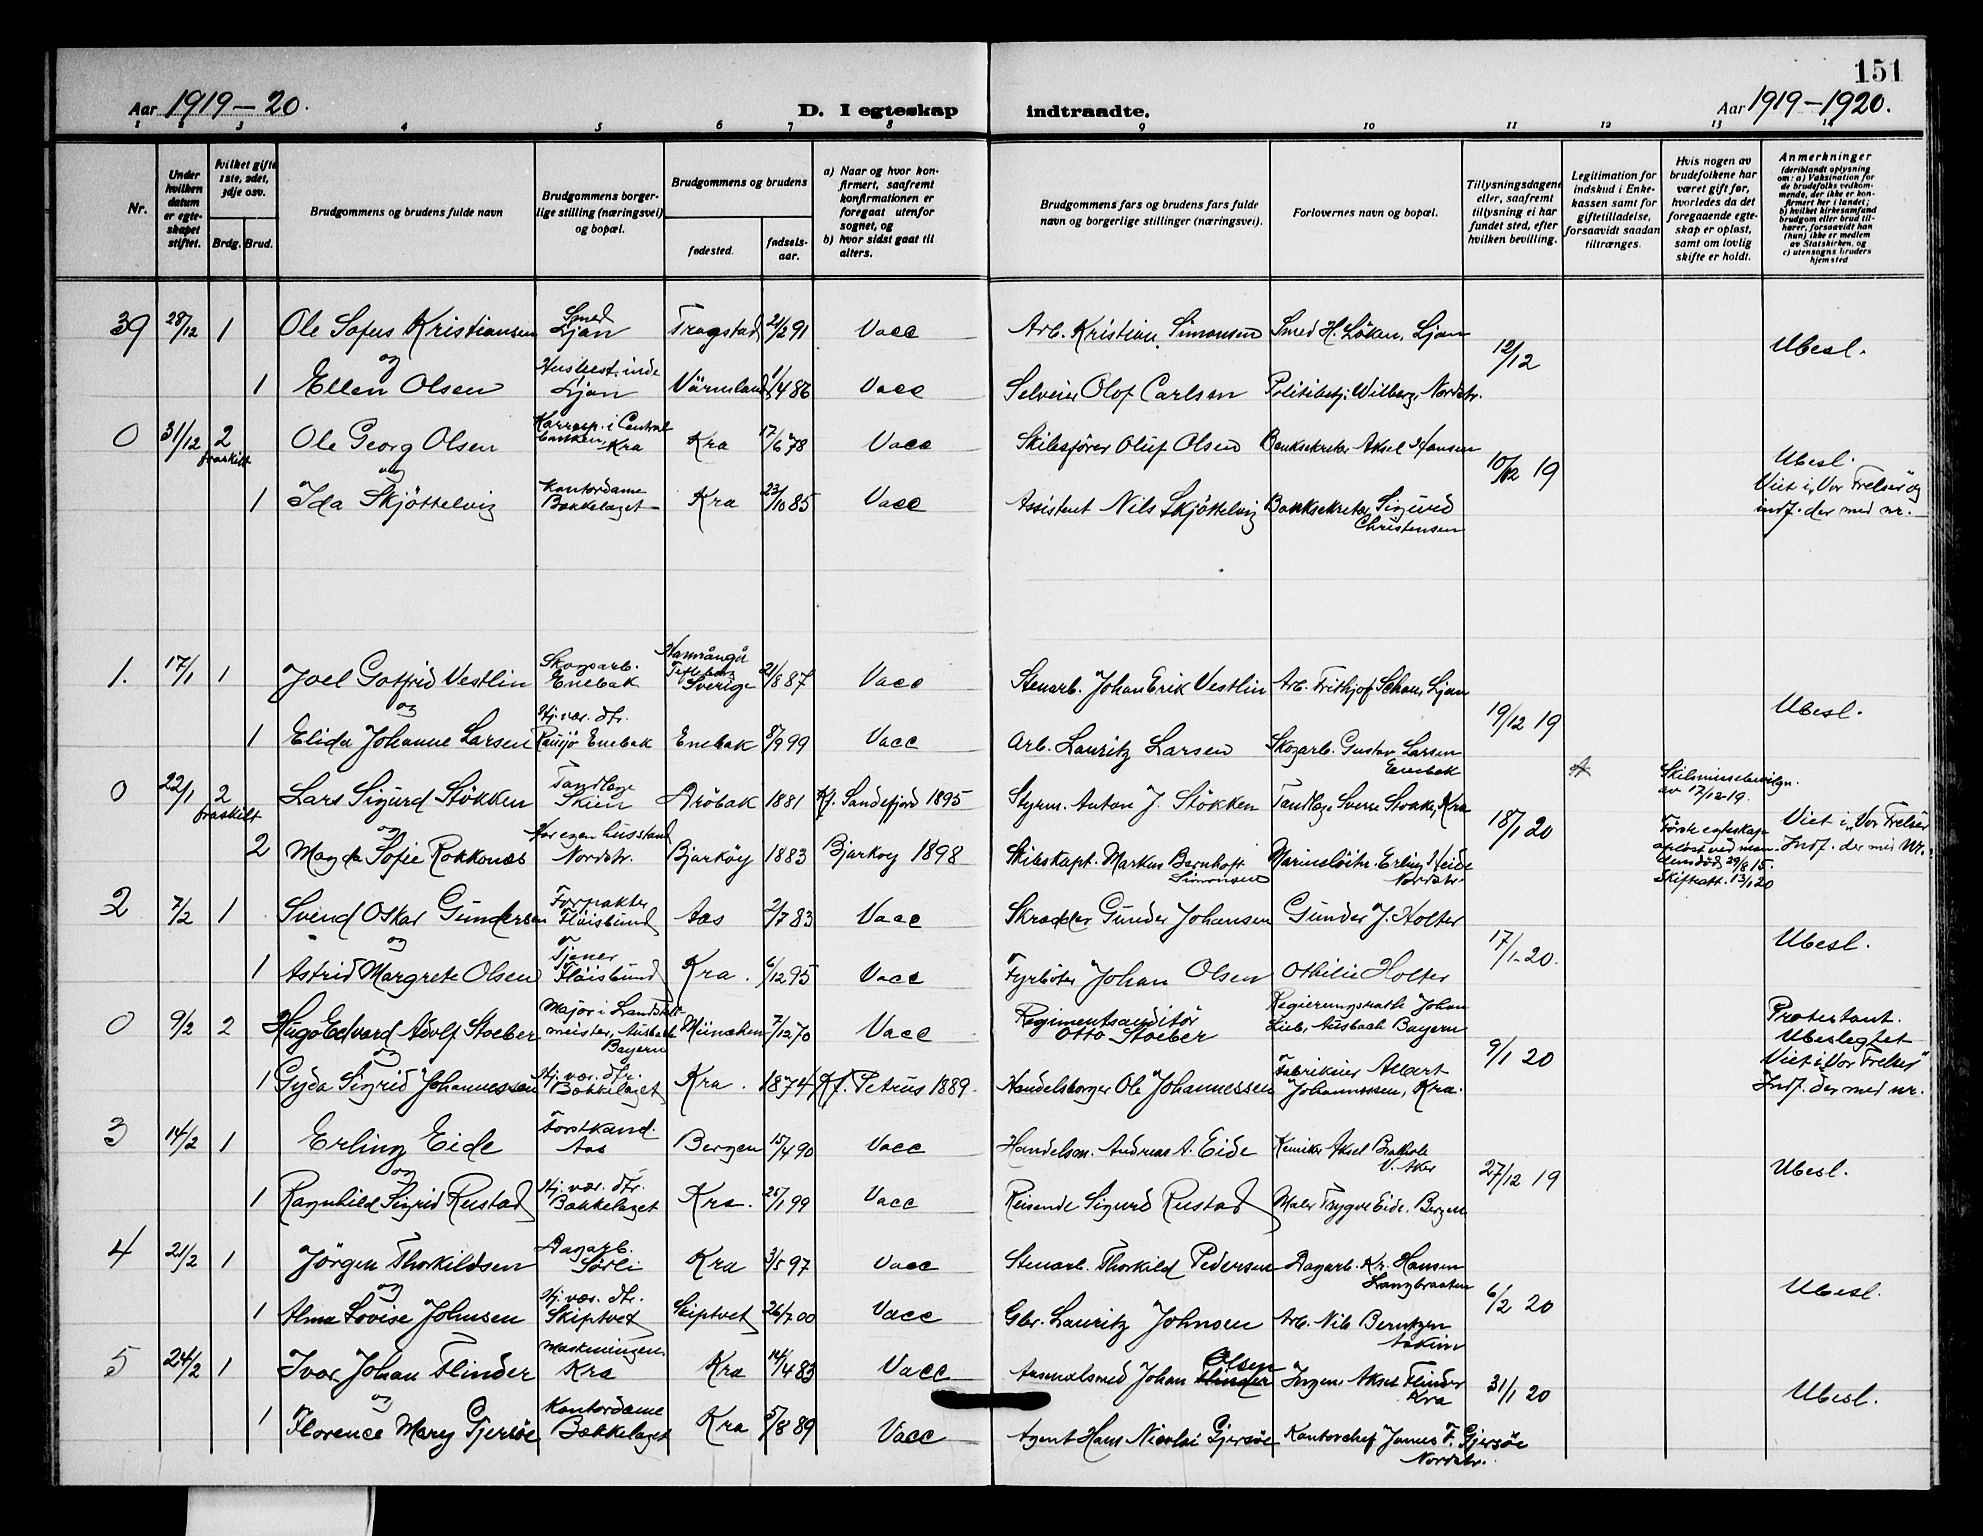 151
Aar 1919–20. D. I egteskap indtraadte. Aar 1919–1920.
1 2 3 4 5 6 7 8 9 10 11 12 13 14
Nr.
Under hvilken datum er egteskapet stiftet.
Hvilket gifte 1ste, 2det, 3dje osv.
Brdg. Brud.
Brudgommens og brudens fulde navn
Brudgommens borgerlige stilling (næringsvei) og bopæl.
Brudgommens og brudens
fødested. fødselsaar.
a) Naar og hvor konfirmert, saafremt konfirmationen er foregaat utenfor sognet, og
b) hvor sidst gaat til alters.
Brudgommens fars og brudens fars fulde navn og borgerlige stillinger (næringsvei).
Forlovernes navn og bopæl.
Tillysningsdagene eller, saafremt tillysning ei har fundet sted, efter hvilken bevilling.
Legitimation for indskud i Enkekassen samt for giftetilladelse, forsaavidt saadan tiltrænges.
Hvis nogen av brudefolkene har været gift før, hvorledes da det foregaaende egteskap er opløst, samt om lovlig skifte er holdt.
Anmerkninger (deriblandt oplysning om: a) Vaksination for de brudefolks vedkommende, der ikke er konfirmert her i landet; b) hvilket kirkesamfund brudgom eller brud tilhører, forsaavidt han (hun) ikke er medlem av Statskirken, og c) utensogns bruders hjemsted
39 28/12 1 Ole Sofus Kristiansen Smed Ljan Trøgstad 21/2 91 Vacc Arb. Kristian Simonsen Smed H. Løken, Ljan 12/12 Ubesl.
og
1 Ellen Olsen Husbest.inde Ljan Värmland 1/4 86 Vacc Selveier Olof Carlsen Politibetj. Wilberg, Nordstr.
0 31/12 2 fraskilt Ole Georg Olsen Korresp. i Centralbanken, Kra Kra 17/6 78 Vacc Skibsfører Oluf Olsen Banksekretær Aksel Hansen 10/12 19 Ubesl.
og
1 Ida Skjøttelvig Kontordame Bækkelaget Kra 23/10 85 Vacc Assistent Nils Skjøttelvig Banksekretær Sigurd Christensen Viet i "Vor Frelser" og indf. der med nr.
1. 17/1 1 Joel Gotfrid Vestlin Skogsarb. Enebak Hamrångå Gefleborg Sverige 21/8 87 Vacc Stenarb. Johan Erik Vestlin Arb. Frithjof Schou, Ljan 19/12 19 Ubesl.
og
1 Elida Johanne Larsen Hj. vær. dtr. Rausjø Enebak Enebak 8/9 99 Vacc Arb. Lauritz Larsen Skogarb. Gustav Larsen Enebak
0 22/1 2 fraskilt Lars Sigurd Støkken Tandlæge Skien Drøbak 1881 Kf. Sandefjord 1895 Styrm. Anton J. Støkken Tandlæge Sverre Kra 18/1 20 Skilsmissebevilgn. av 17/12-19. Viet i "Vor Frelser"
og
2 Magda Sofie Rokkones Har egen husstand Nordstr. Bjarkøy 1883 Bjarkoy 1898 Skibskapt. Markus Bernhoft Simonsen Marineløitn. Erling Heide Nordstr. Første egteskap opløst ved mandens død 29/8 15. Skifteatt. 13/1 20 Indf. der med Nr.
2 7/2 1 Svend Oskar Gundersen Forpakter Fløisbund Aas 2/7 83 Vacc Skrædder Gunder Johansen Gunder J. Holter 17/1-20. Ubesl.
og
1 Astrid Margrete Olsen Tjener Fløisbund Kra. 6/12 95 Vacc Fyrbøter Johan Olsen Othilie Holter
0 9/2 2 Hugo Edvard Adolf Stoeber Major i Ansbach Bayern München 7/12 70 Vacc Regimentsauditør Otto Stoeber Regierungsrath Johan Ansbach Bayern 9/1 20 Protestant. Ubeslegtet
og
1 Gyda Sigrid Johannessen Hj. vær. dtr. Bækkelaget Kra. 1874 Kf. Petrus 1889. Handelsborger Ole Johannessen Fabrikeier Johannessen, Kra. Viet i "Vor Frelser" Indf. der med nr.
3 14/2 1 Erling Eide Forstkand. Aas Bergen 15/4 90 Vacc Handelsm. Andreas A. Eide Kemiker Aksel V. Aker 27/12 19 Ubesl.
og
1 Ragnhild Sigrid Rustad Hj. vær. dtr. Bækkelaget Kra. 25/1 99 Vacc Reisende Sigurd Rustad Maler Trygve Eide, Bergen
4 21/2 1 Jørgen Thorkildsen Dagarb. Sørli Kra 3/5 97 Vacc Stenarb. Thorkild Pedersen Dagarb. Kr. Hansen Langbraaten 6/2 20 Ubesl.
og
1 Alma Lovise Johnsen Hj. vær. dtr. Skiptvet Skiptvet 26/7 00 Vacc Gbr. Lauritz Johnsen Arb. Nils Berntzen Askim
5 24/2 1 Ivar Johan Flinder Maskiningen. Kra Kra 14/4 83 Vacc Arsenalsmed Johan Olsen Flinder Ingen. Aksel Flinder Kra 31/1 20 Ubesl.
og
1 Florence Mary Gjersøe Kontordame Bækkelaget Kra 5/8 89 Vacc Agent Hans Nicolai Gjersøe Kontorchef James F. Gjersøe Nordstr.